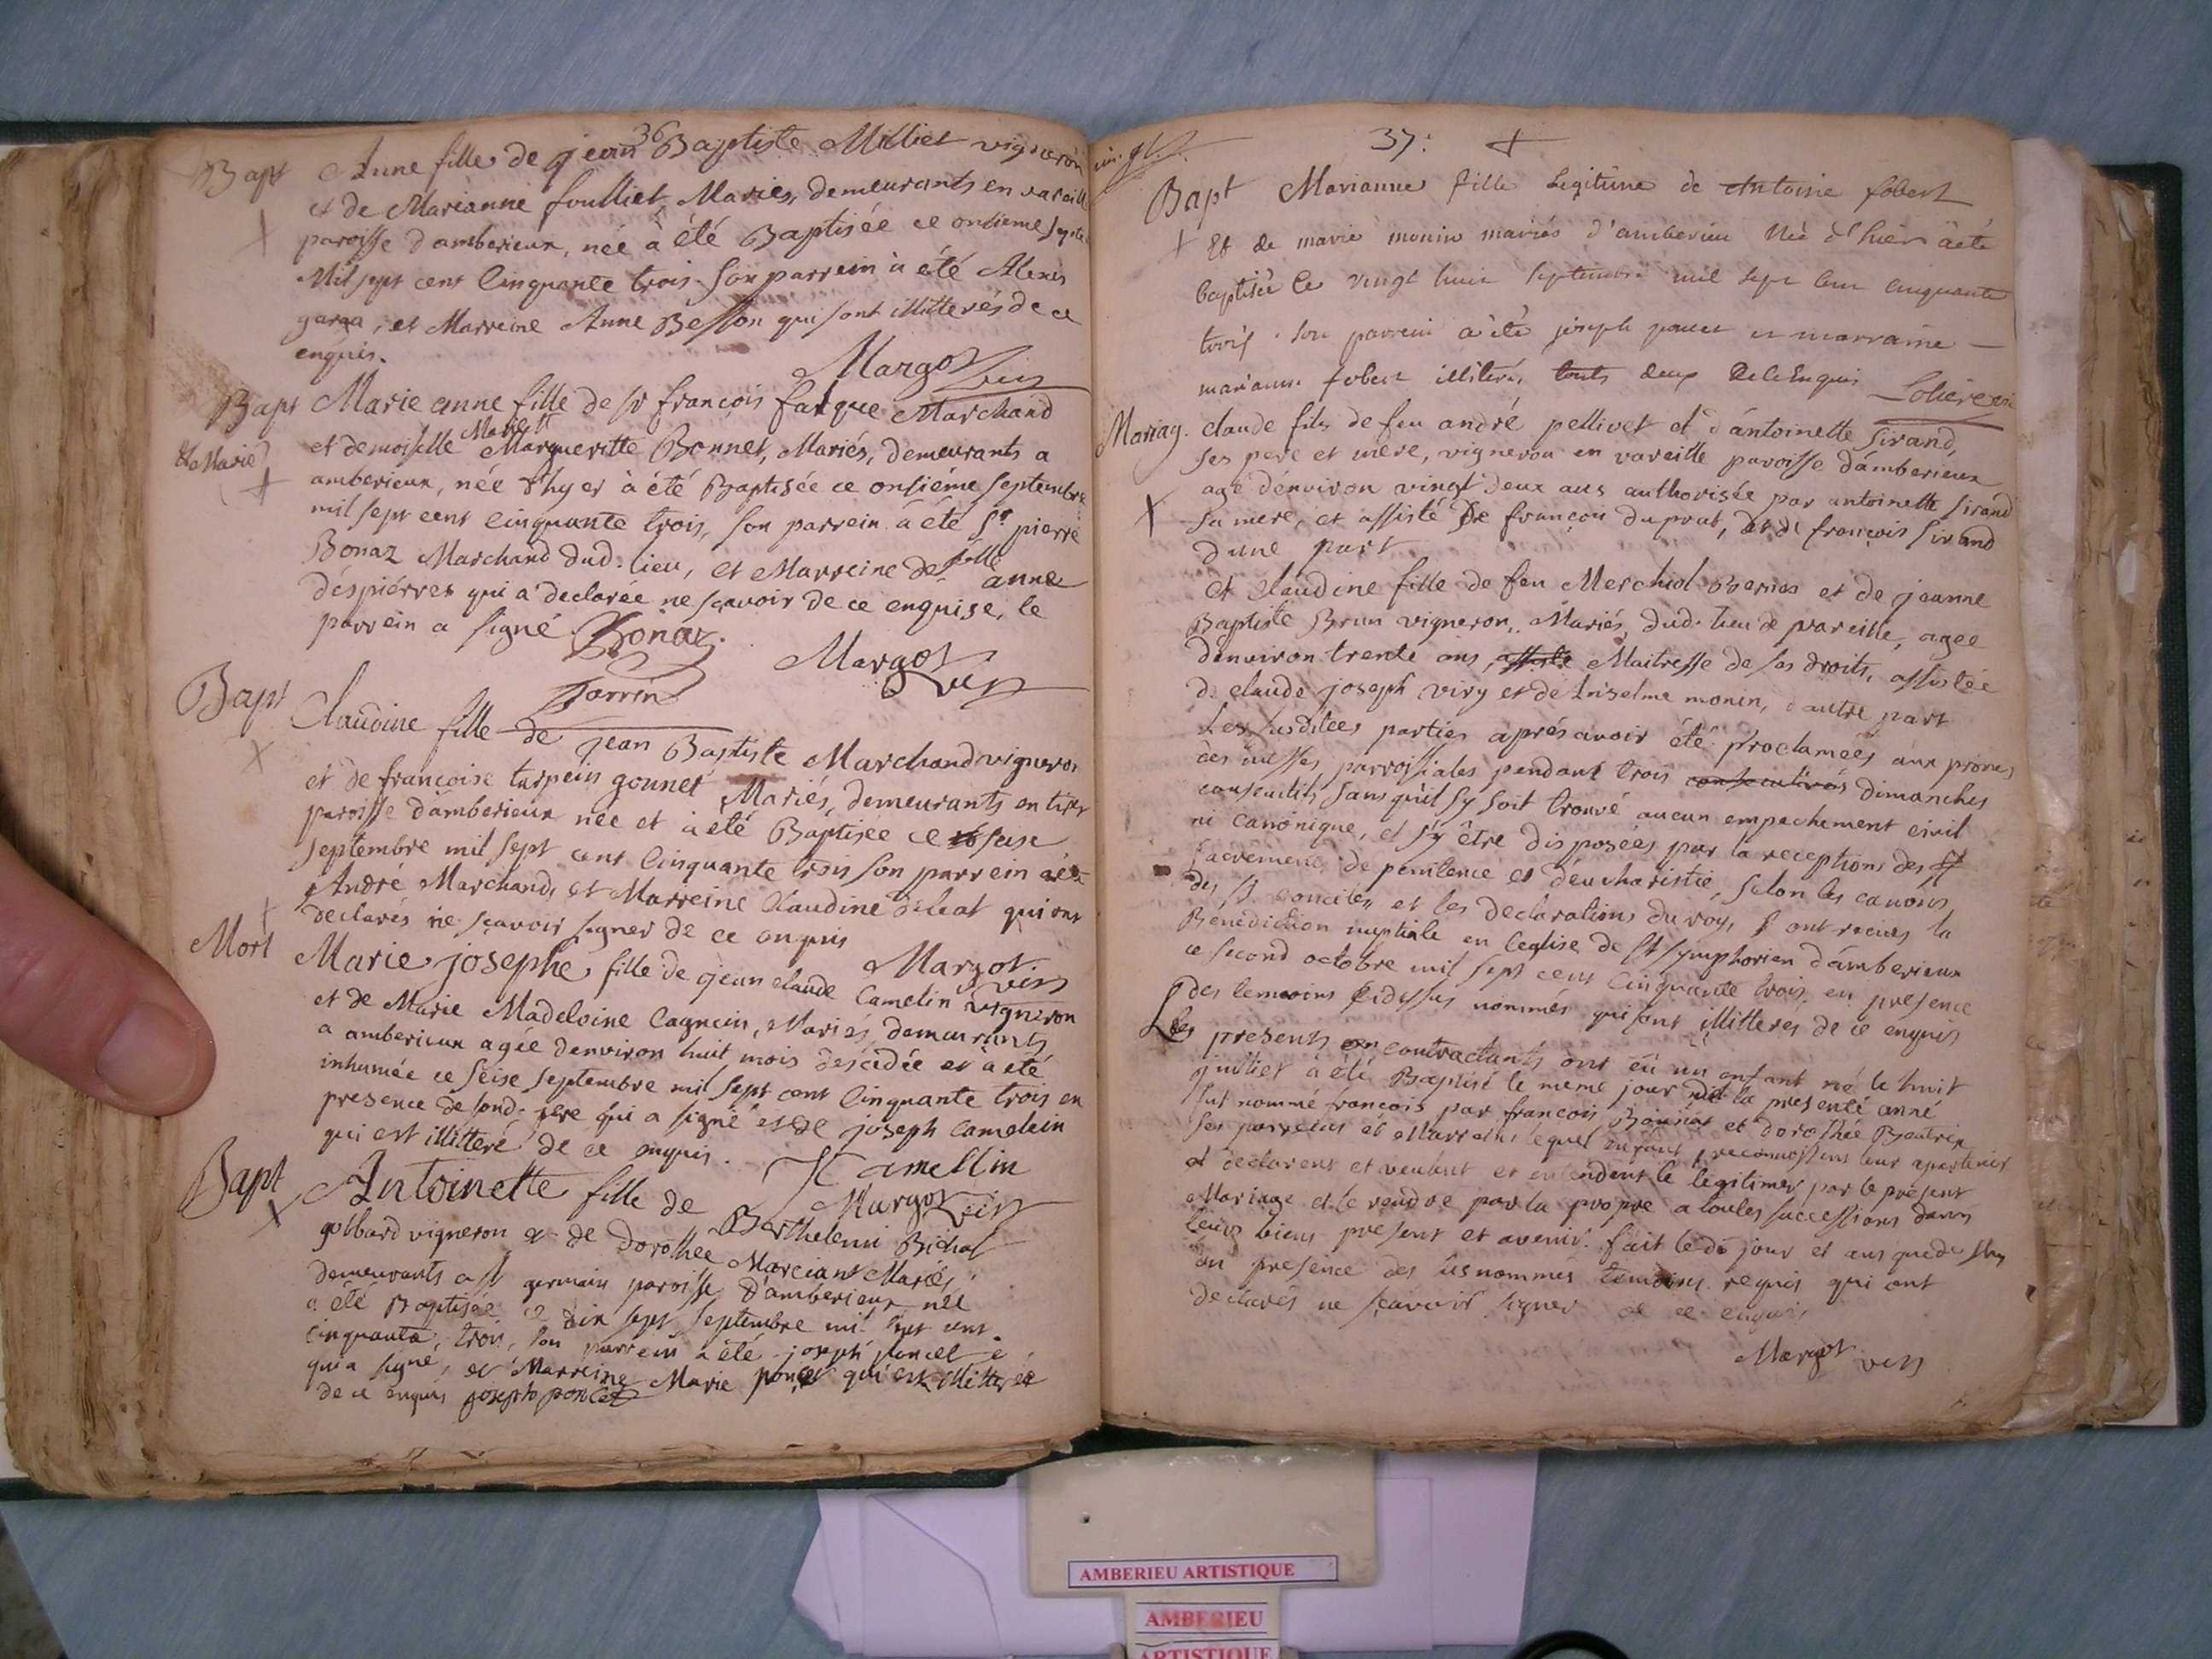 36
Bapt Anne fille de jean Baptiste Milliet vigneron
et de Marianne foulliet Mariés, demeurants en vareille
paroisse d'amberieux, née à été Baptisée ce onsieme septe
Mil sept cent Cinquante trois. Son parrein à été Alexis
et Marreine Anne Besson qui sont illitterés de ce
enquis.
Margot vics
Bapt Marie anne fille de sr françois falque Marchand
Marie
et demoiselle Margueritte Bonnet, Mariés, demeurants a
et Marie
amberieux, née d'hyer à été Baptisée ce onsiéme septembre
mil sept cent Cinquante trois, son parrein à été Sr pierre
Bonaz Marchand dud. lieu, et Marreine delle anne
déspiérres qui a declarée ne sçavoir de ce enquise, le
parrein a signé. Bonaz.
Margot vics
Bapt
Claudine fille de jean Baptiste Marchand vigneron
et de françoise turpein gonnet Mariés, demeurants en
paroisse d'amberieux née et à été Baptisée ce 16 seise
septembre mil sept cent Cinquante trois son parrein a été
André Marchand, et Marreine Claudine qui ont
declarés ne sçavoir signer de ce enquis
Margot vics
Mort Marie josephe fille de jean claude Camelin vigneron
et de Marie Madeleine Cagnein, Mariés, demeurants
a amberieux agée denviron huit mois descédée et à été
inhumée ce seise septembre mil sept cent Cinquante trois en
presence de sond. pere qui a signé et de joseph Camelein
qui est illitteré de ce enquis.
Camellin
Margot vics
Bapt Antoinette fille de Berthelemi Bichat
gobbard vigneron et de Dorothée Marciant Mariés
demeurants a st germain paroisse d'amberieux née
a été Baptisée ce dix sept septembre mil sept cent
Cinquante, trois, son parrein a été joseph poncet
qui a signé, et Marreine Marie poncet qui est illitterée
de ce enquis joseph poncet
37:
Bapt Marianne fille Legitime de Antoine fobert
Et de marie monin mariés d'amberieu Née d'hier àété
baptisée le vingt huit septembre mil sept cent cinquante
trois. son parrein a été joseph poncet et marraine
marianne fobert illiterés touts deux De ce Enquis
Mariag. claude fils de feu andré pellivet et d'antoinette Sirand,
ses pere et mere, vigneron en vareille paroisse d'amberieux
agé d'environ vingt deux ans authorisée par antoinette Sirand
sa mere, et assisté de françois duprat, et de françois Sirand
d'une part
et Claudine fille de feu Merchiol Bernas et de jeanne
Baptiste Brun vigneron, Mariés, dud. lieu de vareille, agée
d'environ trente ans, assisté Maitresse de ses droits, assistée
de claude joseph viry et de Anselme monin, d'autre part
Les susdittes parties aprés avoir été proclamées aux prones
des messes parrossiales pendant trois consecutives dimanches
consecutifs sans qu'il sy soit trouvé aucun empechement civil
ni canonique, et s'y être disposées par la receptions des sts
sacrements de penitence et d'eucharistie, selon les canons
des st conciles et les declarations du roy, ont recües la
Benediction nuptiale en l'eglise de St symphorien d'amberieux
ce second octobre mil sept cent Cinquante trois, en presence
des temoins cidessus nommés qui sont illitterés de ce enquis
Les presents contractants ont eü un enfant né le huit
juillet à été Baptisé le meme jour la presente année
fut nommé françois par françois et dorothée Beatrix
ses parreins et Marreine lequel enfant reconnoissens leur apartenir
et declarent et veulent et entendent le legitimer par le présent
Mariage et le rendre par la propre a toutes successions dans
leurs biens present et avenir. fait le dt jour et an que dessus
en presence des susnommes temoins requis qui ont
declarés ne sçavoir signer de ce enquis
Margot vics
AMBERIEU ARTISTIQUE
AMBERIEU
ARTISTIQUE